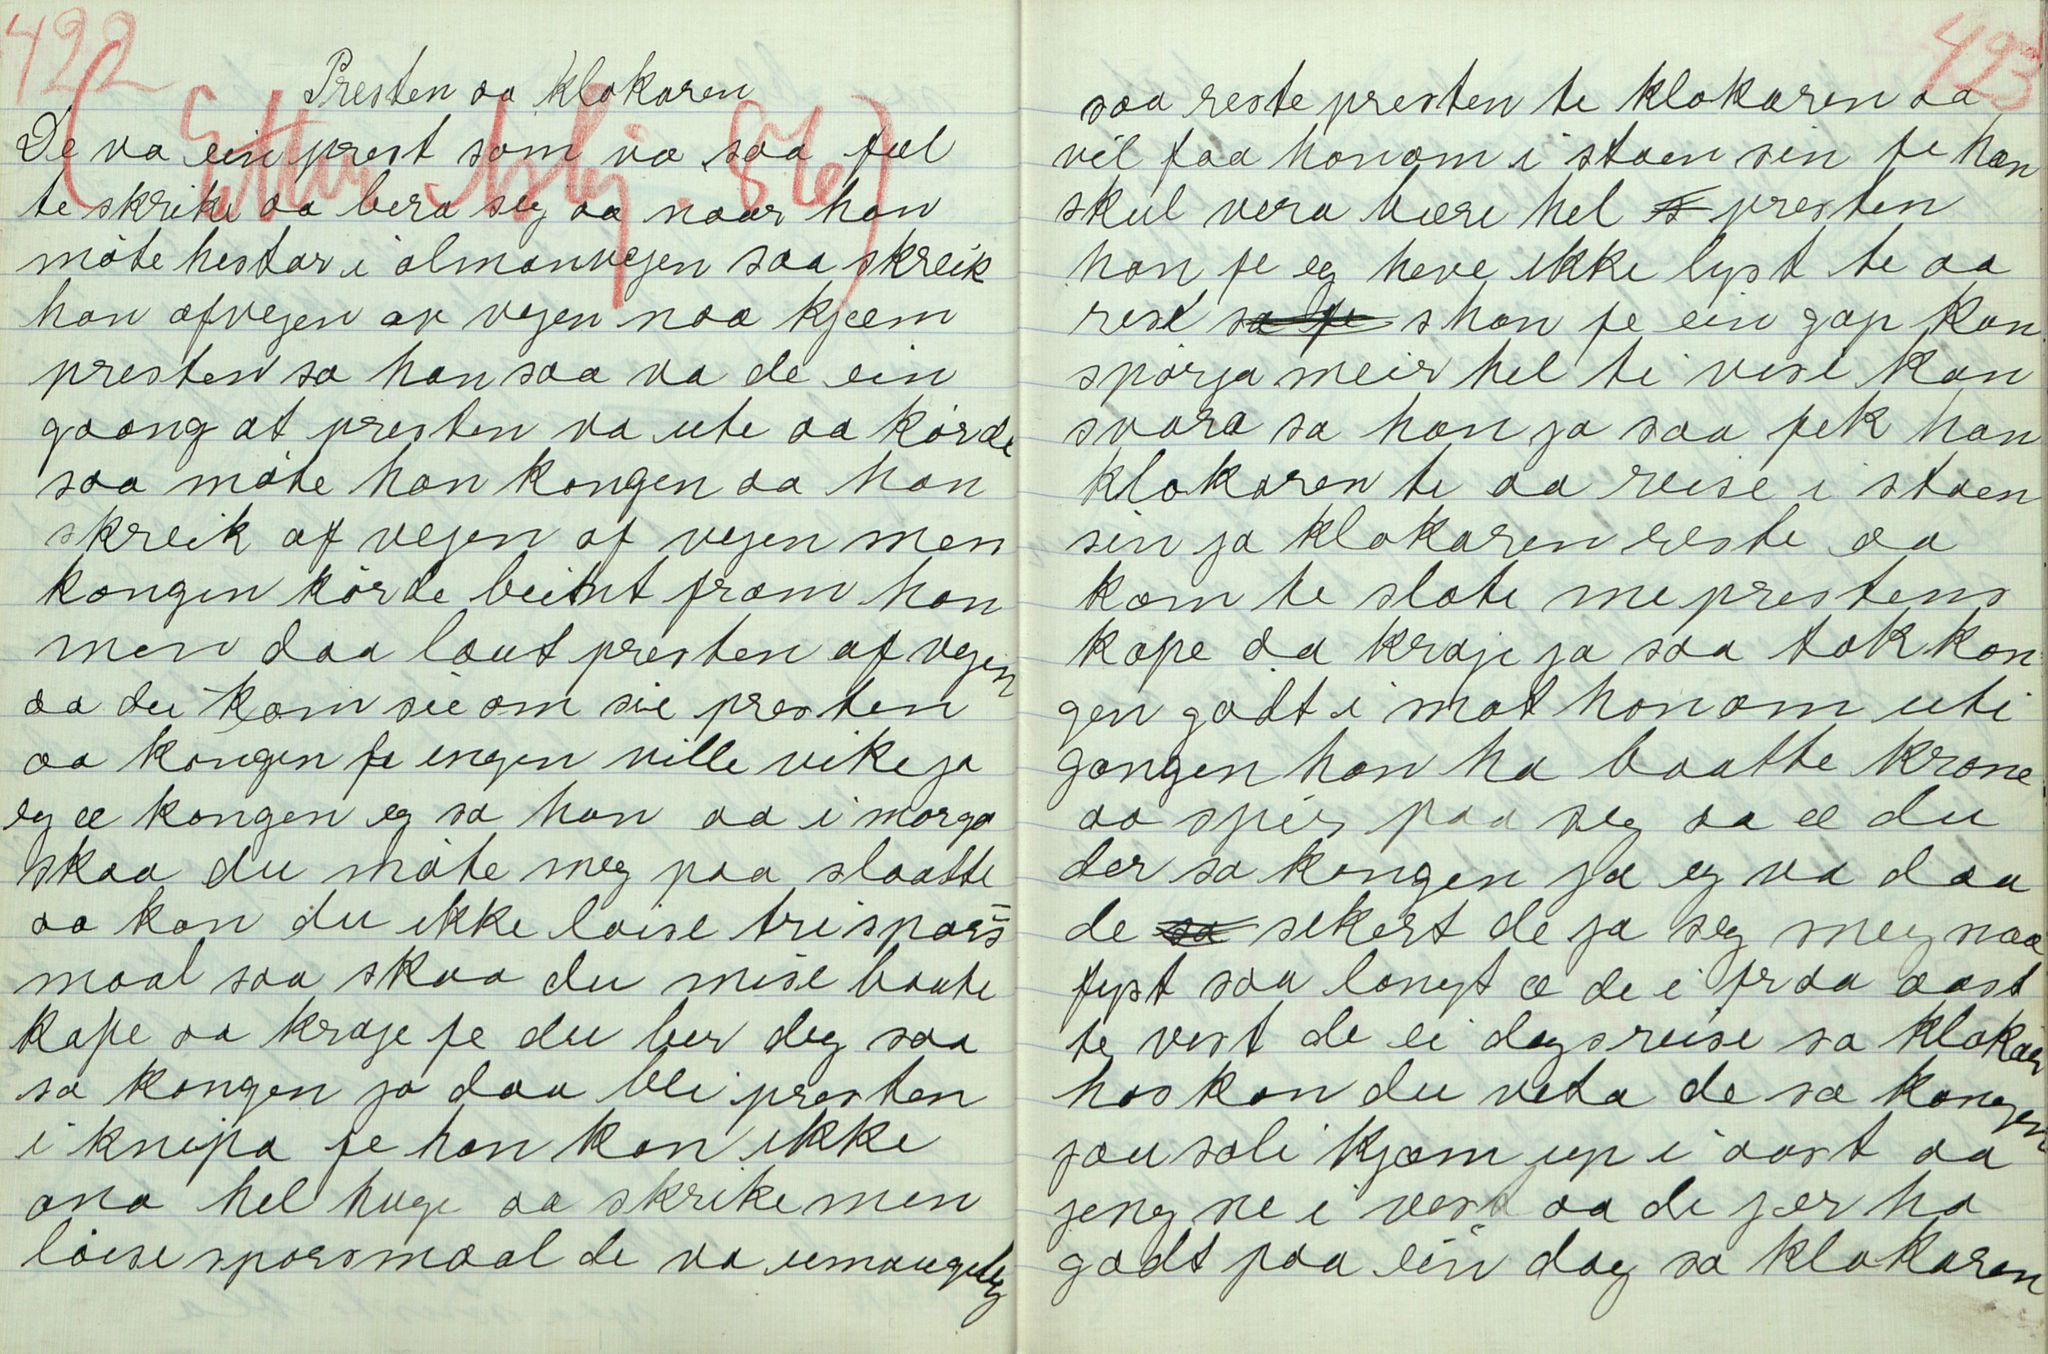 422
Presten aa klokaren
(Etter bkj. 816)
De va ein prest som va saa fæl
te skrike aa bera seg aa naar han
møte hestar i almanvegen saa skreik
han afvegen av vegen naa kjæm
presten sa han saa va de ein
gaang at presten va ute aa kørde
saa møte han kongen aa han
skreik af vegen af vegen men
kongen kørde beint fram han
men daa laut presten af vegen
aa du kom sie om sie presten
aa kongen fe engen ville vike ja
eg æ kongen eg sa han aa i morgo
skaa du møte meg paa slaatte
aa kan du ikke løise tri spørs
maal saa skaa du mise baate
kape aa krage fe du ber deg saa
sa kongen ja daa blei presten
i knipa fe han kan ikke
ana hel huge aa skrike men
løise spørsmaal de va umaugeleg
423
saa reste presten te klokaren aa
vil faa honom i staen sin fe han
skul vera bære hel s presten
han fe eg heve ikke lyst te aa
rese sa fe s han fe ein gap kan
spørja meir hel ti vise kan
svara sa han ja saa fek han
klokaren te aa reise i staen
sin ja klokaren reste aa
kom te slote me prestens
kape aa kraje ja saa tok kon
gen godt i mot honom uti
gongen han ha baatte krone
aa spir paa seg aa æ du
der sa kongen ja eg va daa
de sa sekert de ja seg meg naa
fyst saa langt æ de i fraa aast
te vest de ei dagsreise sa klokaren
hos kan du veta de sa kongen
jau soli kjæm up i aast aa
jeng ne i vest aa de jær ho
godt paa ein dag sa klokaren